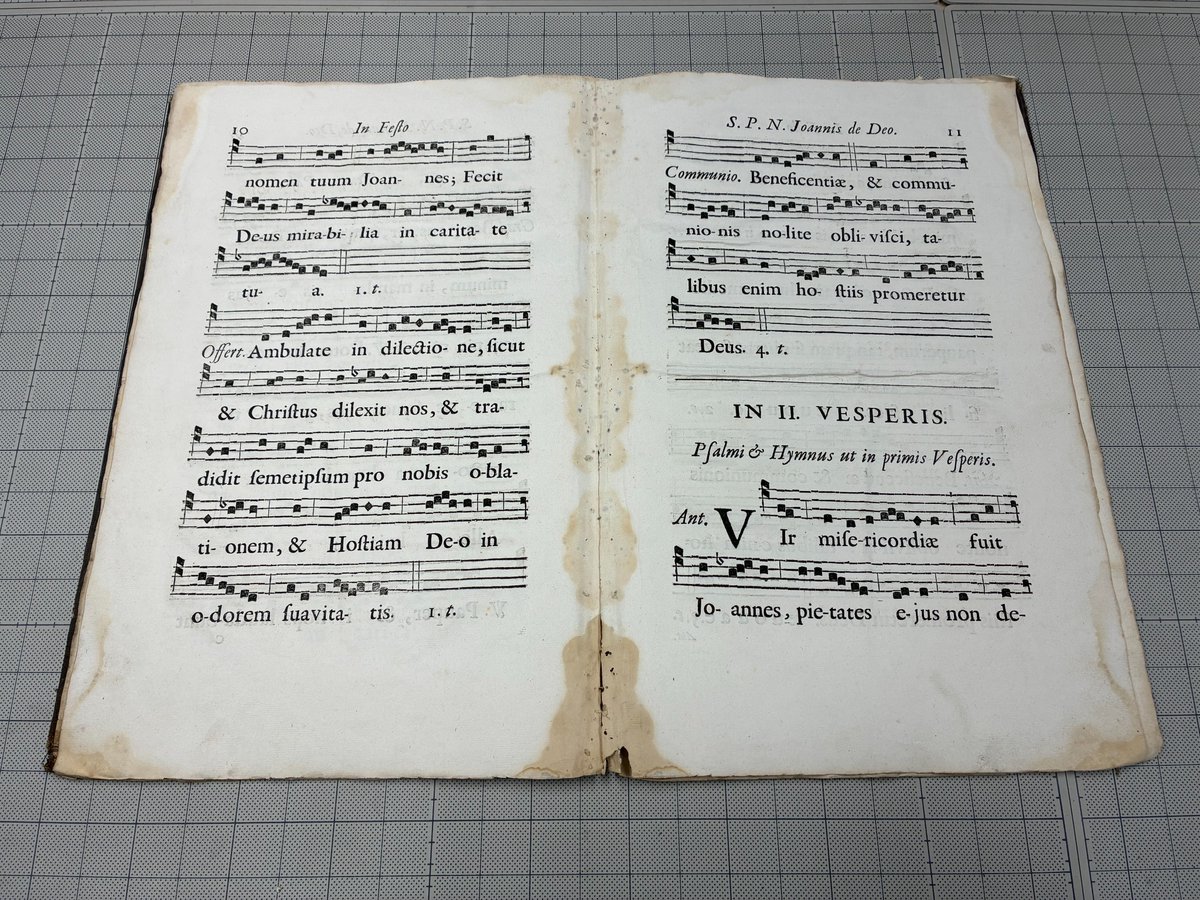 10
In Feſto
nomen tuum Joan- nes; Fecit
De-us mira-bi- lia in carita- te
tu- a. 1. t.
Offert. Ambulate in dilectio- ne, ſicut
& Chriſtus dilexit nos, & tra-
didit ſemetipſum pro nobis o-bla-
ti- onem, & Hoſtiam De-o in
o-dorem ſuavita- tis. 1. t.
S. P. N. Joannis de Deo.
11
Communio. Beneficentiæ, & commu-
nio-nis no-lite obli-viſci, ta-
libus enim ho- ſtiis promeretur
Deus. 4. t.
IN II. VESPERIS.
Pſalmi & Hymnus ut in primis Veſperis.
Ant. VIr miſe-ricordiæ fuit
Jo- annes, pie-tates e-jus non de-